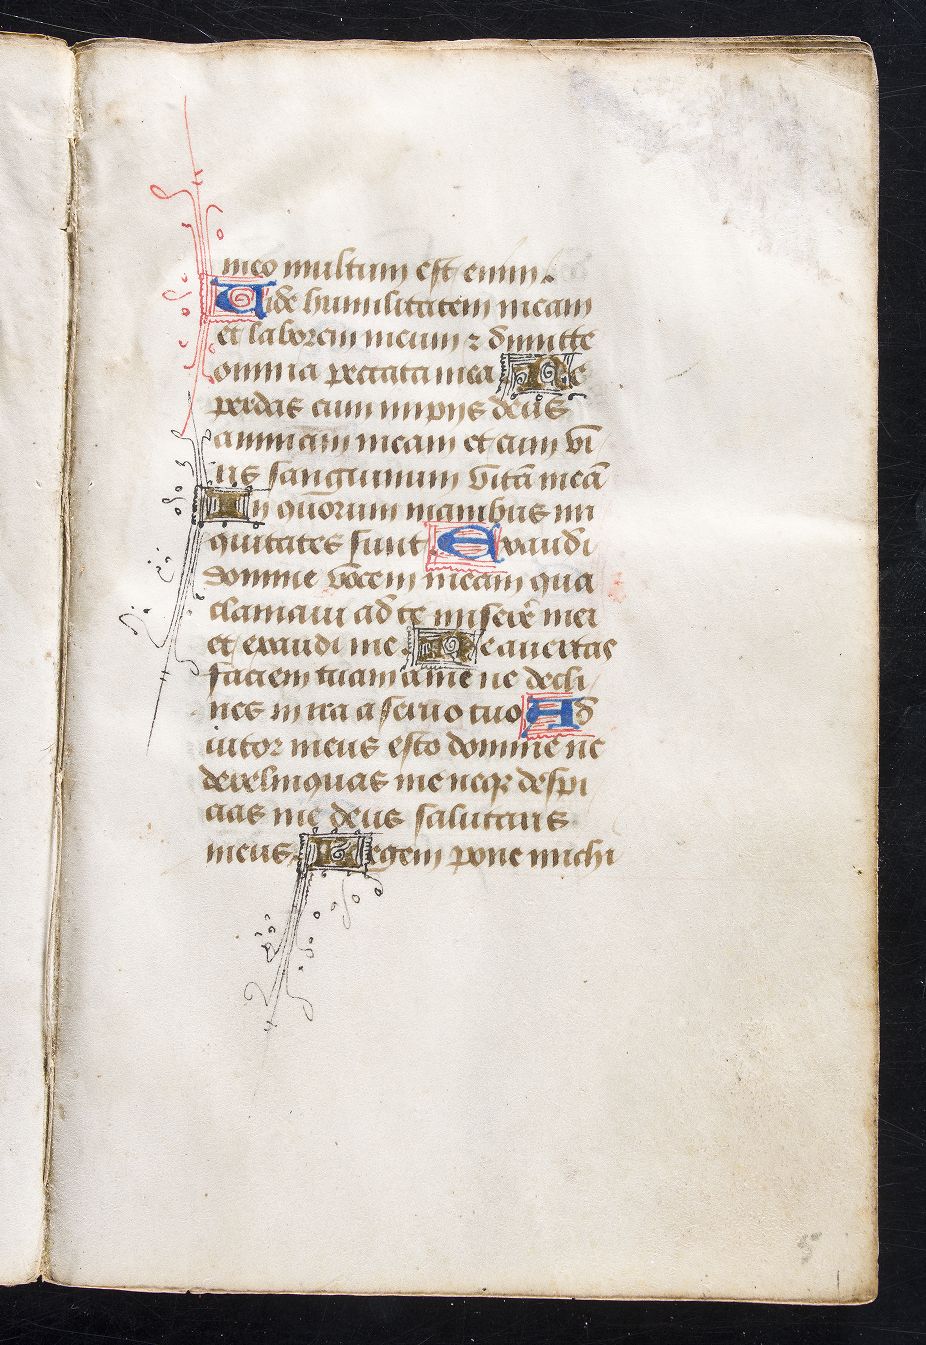 meo multum est enim.
Vide humilitatem meam
et laborem meum ⁊ dimitte
omnia peccata mea Ne
perdas cum impijs deus
animā meam et cum vi
ris sanguinum vitā meā
In quorum manibus ini
quitates sunt Exaudi
domine vocem meam qua
clamaui ad te miserē mei
et exaudi me. Ne auertas
faciem tuam a me ne decli
nes in ira a seruo tuo Ad
iutor meus esto domine ne
derelinquas me neqꝫ despi
cias me deus salutaris
meus. Legem pone michi